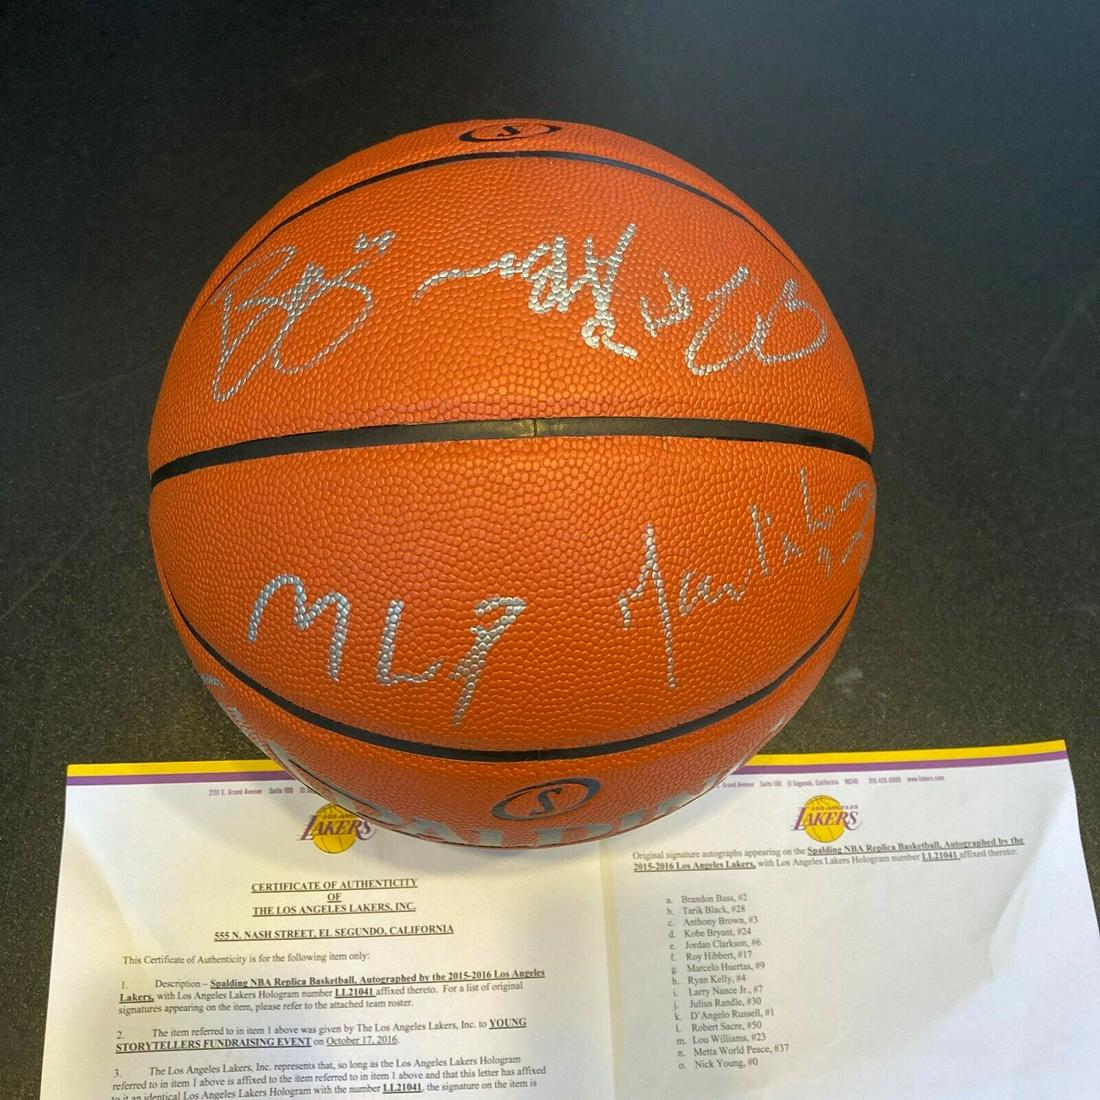 MLP
SPALDING
2151 E. Grand Avenue Suite 100 El
LOS ANGELES
LAKERS
CERTIFICATE OF AUTHENTICITY
OF
THE LOS ANGELES LAKERS, INC.
555 N. NASH STREET, EL SEGUNDO, CALIFORNIA
This Certificate of Authenticity is for the following item only:
1. Description – Spalding NBA Replica Basketball, Autographed by the 2015-2016 Los Angeles
Lakers, with Los Angeles Lakers Hologram number LL21041 affixed thereto. For a list of original
signatures appearing on the item, please refer to the attached team roster.
2. The item referred to in item 1 above was given by The Los Angeles Lakers, Inc. to YOUNG
STORYTELLERS FUNDRAISING EVENT on October 17, 2016.
3. The Los Angeles Lakers, Inc. represents that, so long as the Los Angeles Lakers Hologram
referred to in item 1 above is affixed to the item referred to in item 1 above and that this letter has affixed
to it an identical Los Angeles Lakers Hologram with the number LL21041, the signature on the item is
E. Grand Avenue Suite 100 El Segundo, California 90245 310.426.6000 www.lakers.com
LOS ANGELES
LAKERS
Original signature autographs appearing on the Spalding NBA Replica Basketball, Autographed by the
2015-2016 Los Angeles Lakers, with Los Angeles Lakers Hologram number LL21041 affixed thereto:
a. Brandon Bass, #2
b. Tarik Black, #28
c. Anthony Brown, #3
d. Kobe Bryant, #24
e. Jordan Clarkson, #6
f. Roy Hibbert, #17
g. Marcelo Huertas, #9
h. Ryan Kelly, #4
i. Larry Nance Jr., #7
j. Julius Randle, #30
k. D'Angelo Russell, #1
l. Robert Sacre, #50
m. Lou Williams, #23
n. Metta World Peace, #37
o. Nick Young, #0